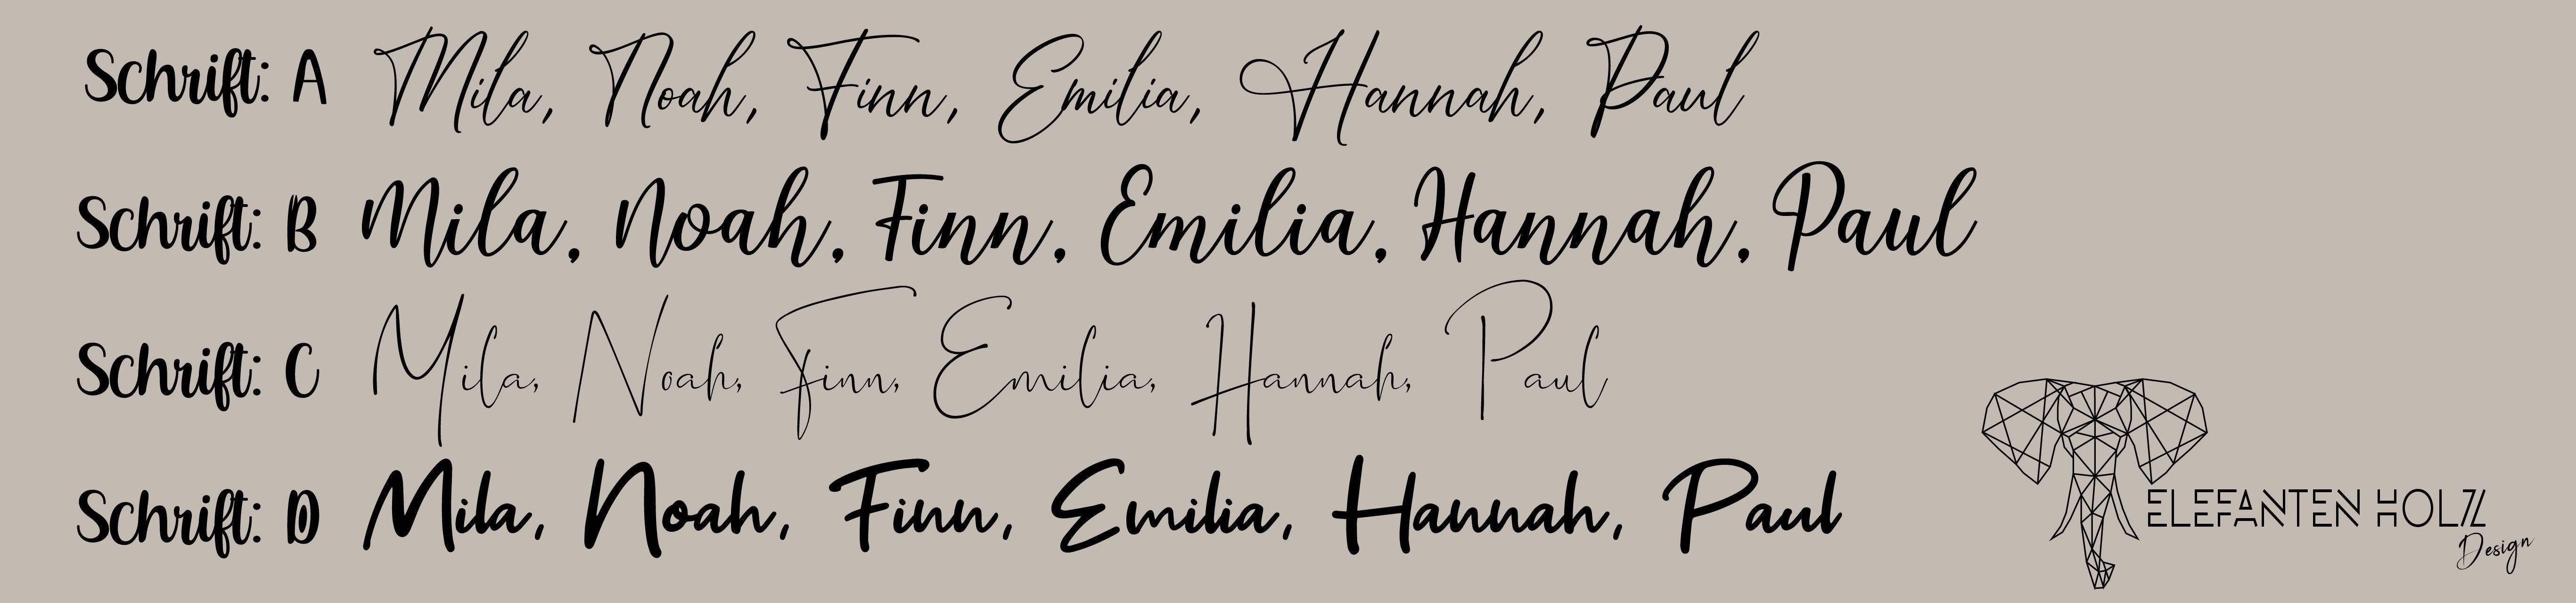 Schrift: A Mila, Noah, Finn, Emilia, Hannah, Paul
Schrift: B Mila, Noah, Finn, Emilia, Hannah, Paul
Schrift: C Mila, Noah, Finn, Emilia, Hannah, Paul
Schrift: D Mila, Noah, Finn, Emilia, Hannah, Paul
ELEFANTEN HOLZ
Design